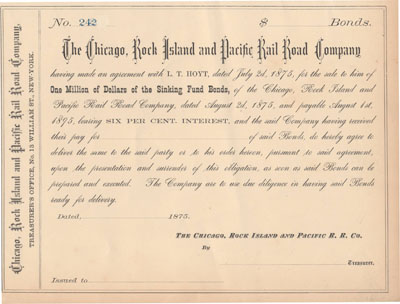 No. 242 $ Bonds.
The Chicago, Rock Island and Pacific Rail Road Company
having made an agreement with L. T. HOYT, dated July 2d, 1875, for the sale to him of
One Million of Dollars of the Sinking Fund Bonds, of the Chicago, Rock Island and
Pacific Rail Road Company, dated August 2d, 1875, and payable August 1st,
1895, bearing SIX PER CENT. INTEREST, and the said Company having received
their pay for of said Bonds, do hereby agree to
deliver the same to the said party or to his order hereon, pursuant to said agreement,
upon the presentation and surrender of this obligation, as soon as said Bonds can be
prepared and executed. The Company are to use due diligence in having said Bonds
ready for delivery.
Dated, 1875.
THE CHICAGO, ROCK ISLAND AND PACIFIC R. R. CO.
By
Treasurer.
Issued to
Chicago, Rock Island and Pacific Rail Road Company,
TREASURER'S OFFICE, No. 13 WILLIAM ST., NEW-YORK.